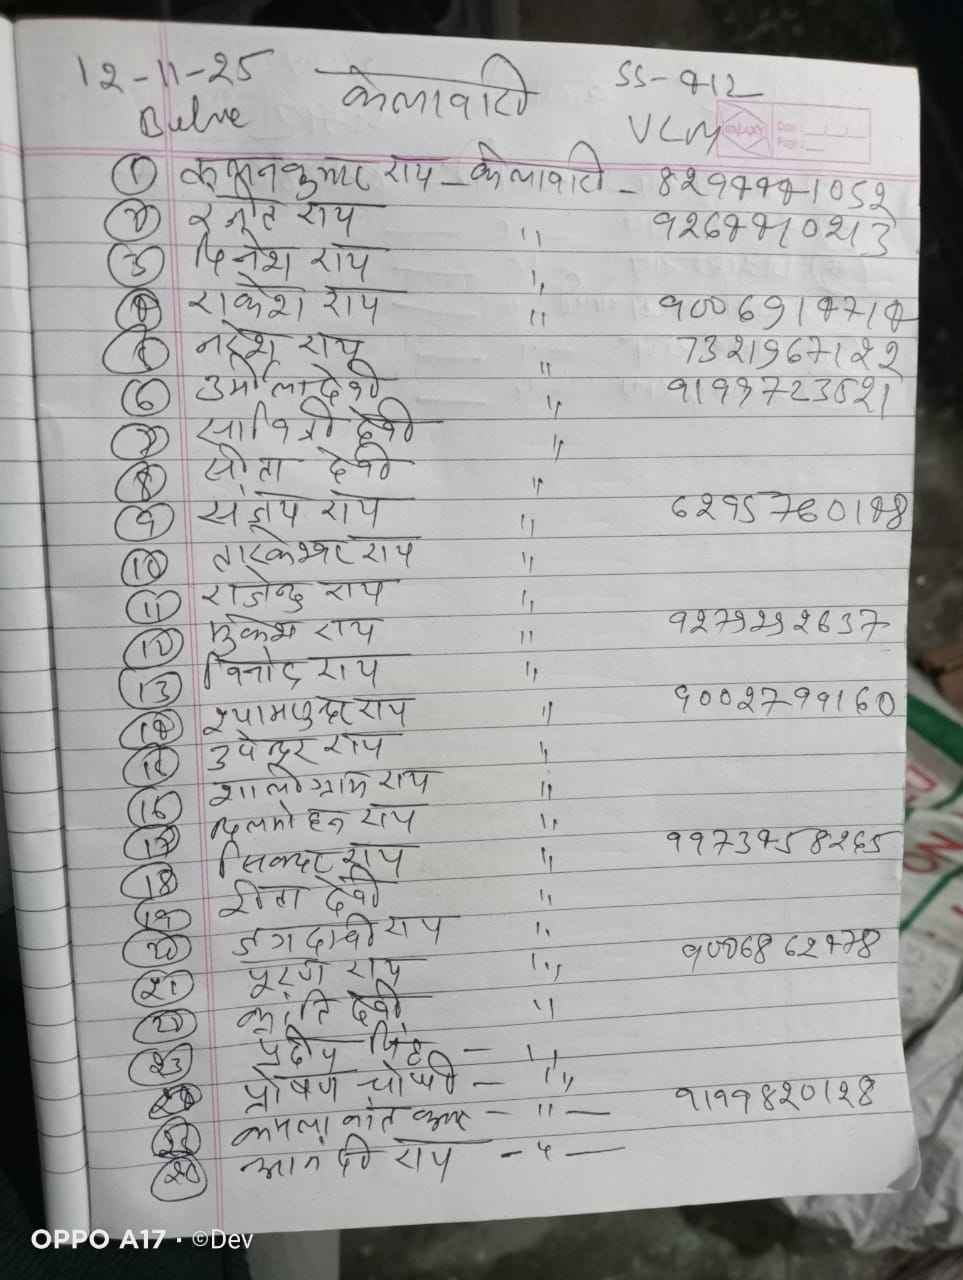 12-11-25 केलावाटी SS-412
Bulve VLM
① कंचनकुमार राय - केलावाटी - 8294441052
② रनजीत राय " 9264410213
③ दिनेश राय "
④ राकेश राय " 9006914714
⑤ नरेश राय " 7321967122
⑥ उर्मीला देवी " 9199723821
⑦ सावित्री देवी "
⑧ सीता देवी "
⑨ संजय राय " 6295760148
⑩ तारकेश्वर राय "
⑪ राजेन्द्र राय "
⑫ मुकेश राय " 9279292637
⑬ विनोद राय "
⑭ श्यामसुन्दर राय " 9002799160
⑮ उपेन्दर राय "
⑯ शालीग्राम राय "
⑰ दिलमोहन राय "
⑱ सिकन्दर राय " 9973458265
⑲ रीता देवी "
⑳ राय "
㉑ पूरण राय " 9006862478
㉒ क्रांति देवी "
㉓ प्रदीप सिंह - "
㉔ - "
㉕ कमला कांत - " - 9199820128
㉖ आनंदी राय - " -